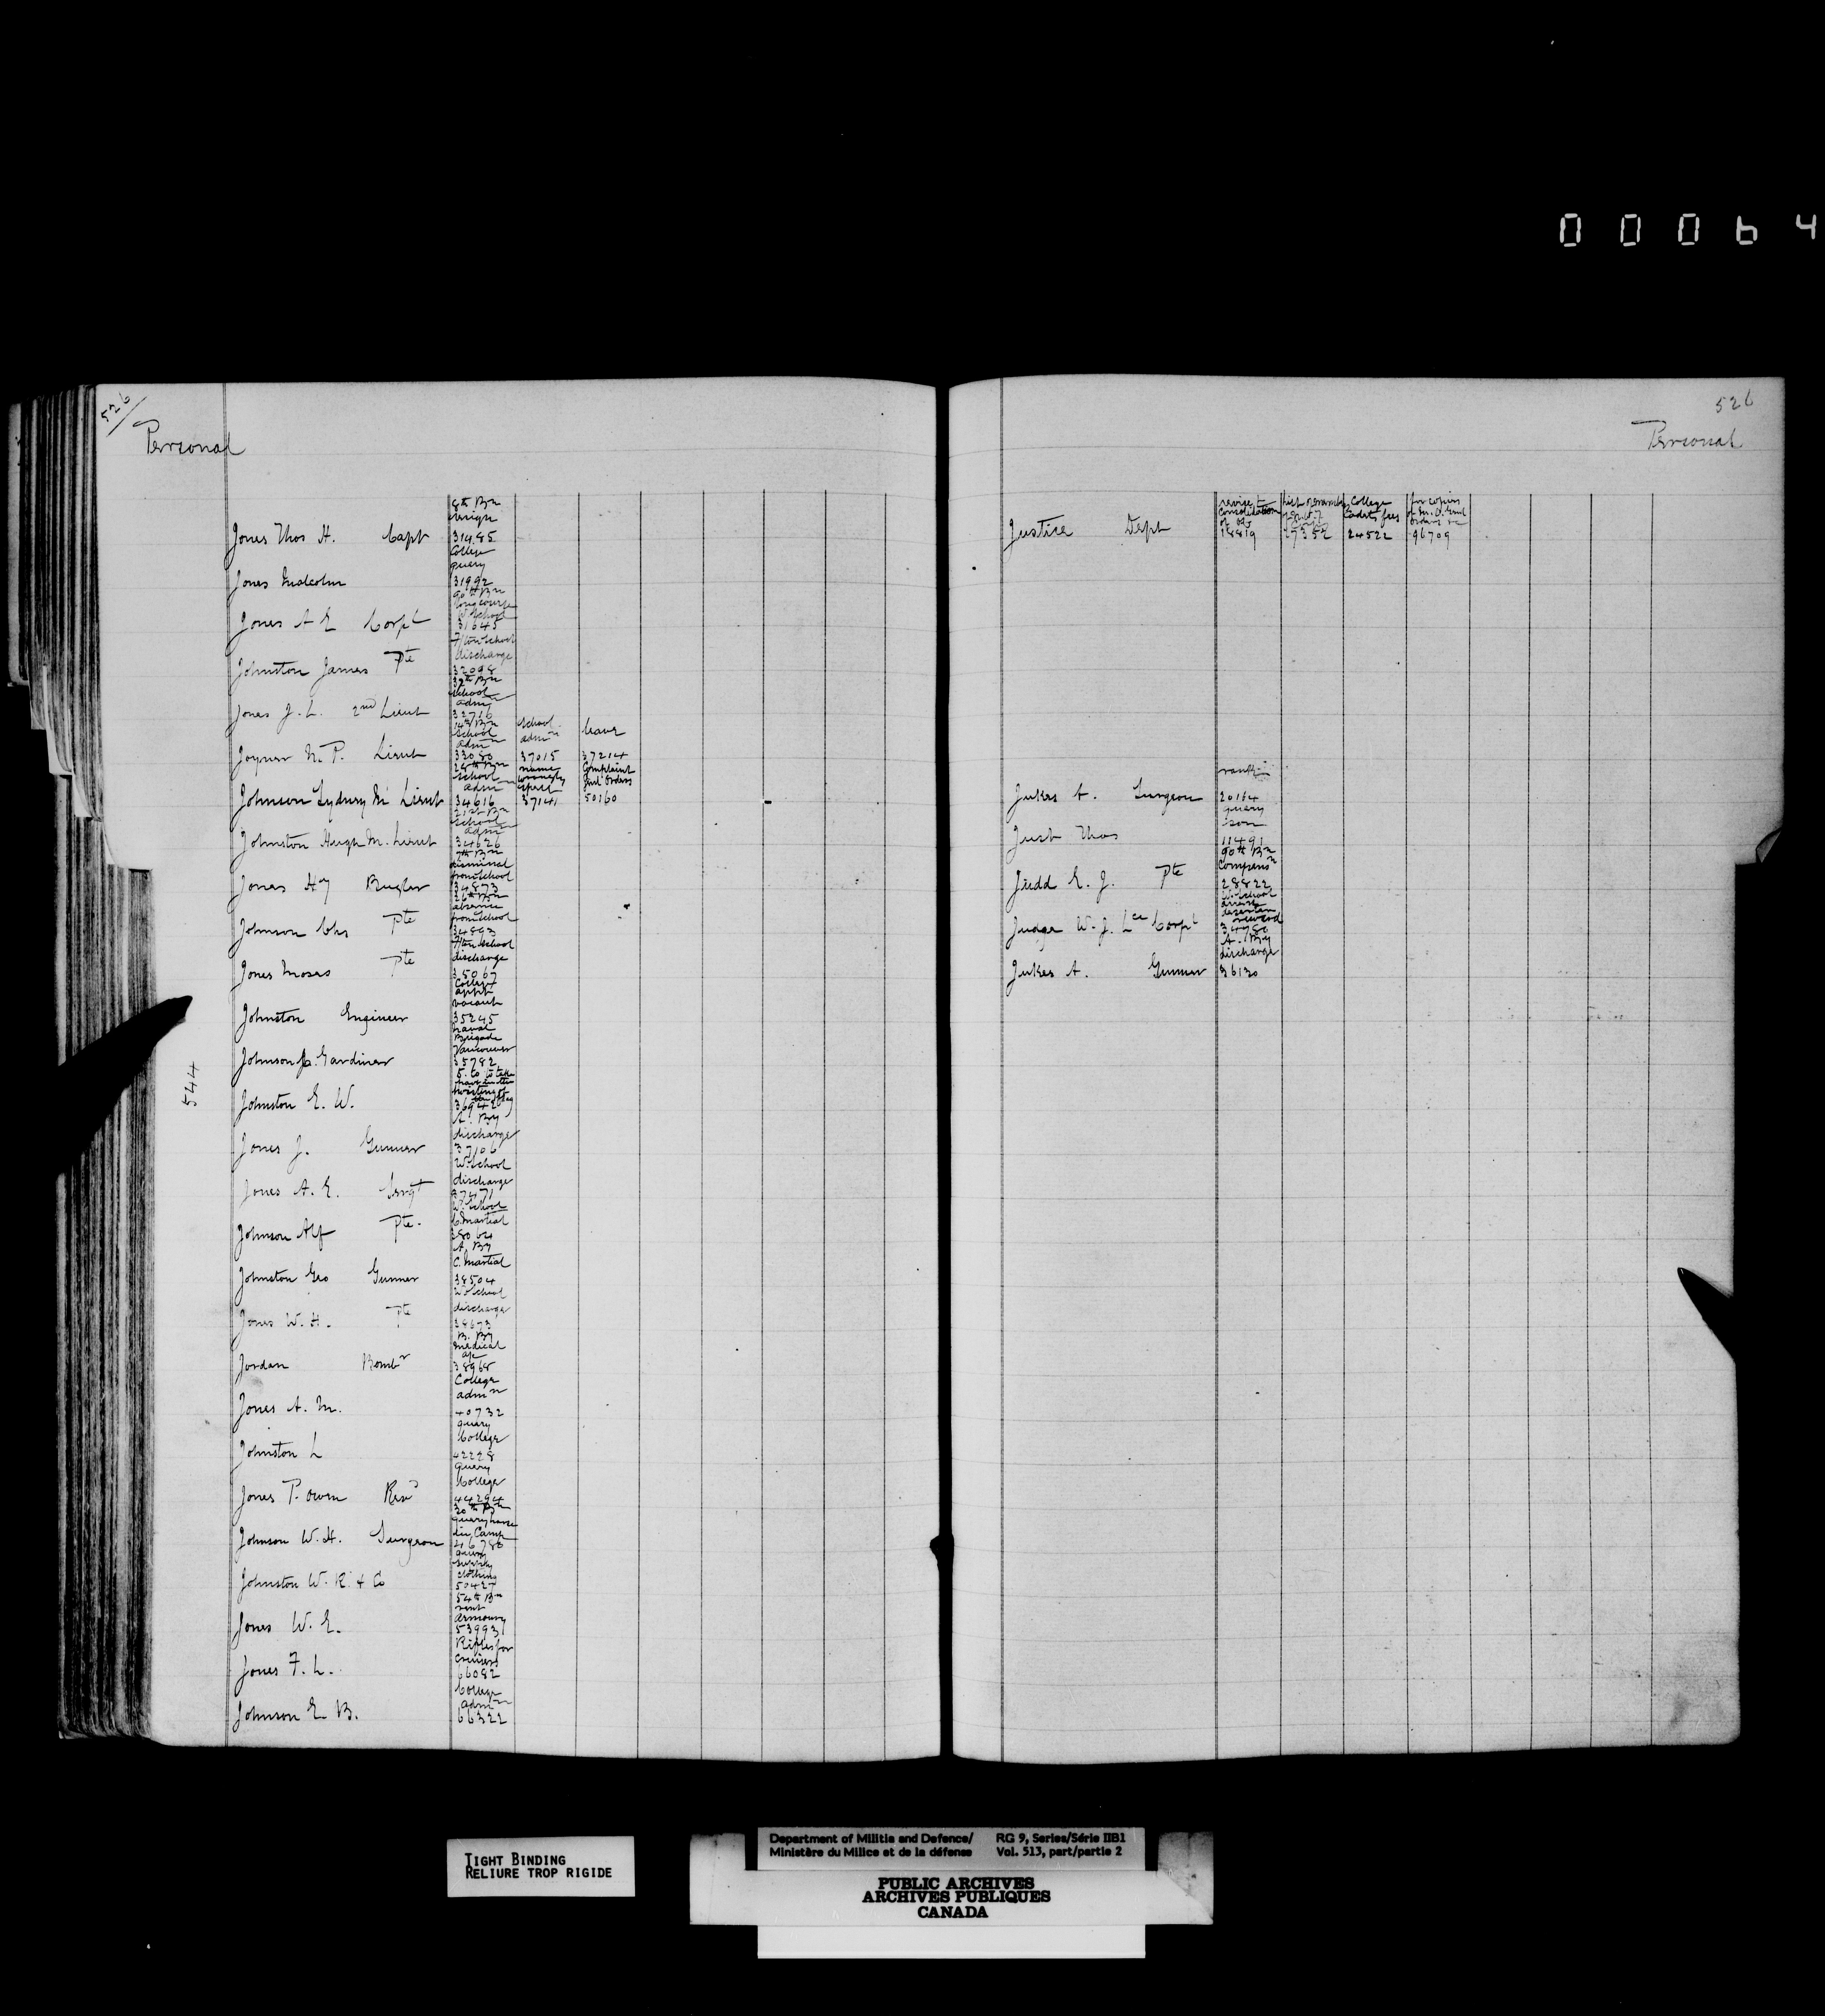 00064
526
Personal
8th Bn
resign
Jones Thos H. Capt 31485
College
query
Jones Malcolm 31992
90th Bn
long course
W. School
Jones A E Corpl 31645
School
discharge
Johnston James Pte 32098
32th Bn
School
admn
Jones J. L. 2nd Lieut 32716
14th Bn
School admn
School admn leave
Joyner N. P. Lieut 33080 37015 37214
28th Bn name Complaint
School wrongly Genl Orders
admn spelt
Johnson Sydney M Lieut 34616 37141 50160
21st Bn
School
admn
Johnston Hugh M. Lieut 34626
7th Bn
dismissal
from School
Jones Hy Bugler 34873
26th Bn
absence
from School
Johnson Chs Pte 34893
School
discharge
Jones Moses Pte 35067
College
appt
vacant
Johnston Engineer 35245
Naval
Brigade
Vancouver
Johnson Gardiner 35782
544
Johnston E. W. 36942
A. By
discharge
Jones J. Gunner 37106
W. School
discharge
Jones A. E. Sergt 37471
W. School
C. Martial
Johnson Alf Pte. 38064
A. By
C. Martial
Johnston Geo Gunner 38504
W. School
discharge
Jones W. H. Pte 38673
B. By
medical
Jordan Bombr 38968
College
admn
Jones A. M. 40732
query
College
Johnston L 42228
query
College
Jones P. Owen Revd 44294
30th Bn
query horse
Camp
Johnson W. H. Surgeon 46788
query
clothing
Johnston W. R. & Co 50427
54th Bn
rent
armoury
Jones W. E. 53993
Rifles for
Cruisers
Jones F. L. 66082
College
admn
Johnson E B. 66322
526
Personal
revise & College for copies
Consolidation Cadets fees of M. O. Genl
Orders &c
Justice Dept 18819 27352 24522 96709
rank
Jukes A. Surgeon 20164
query
son
Just Thos 11491
90th Bn
Compensn
Judd E. J. Pte 28822
W. School
arrest
deserter
reward
Judge W. J. Lce Corpl 34780
A. By
discharge
Jukes A. Gunner 36130
TIGHT BINDING
RELIURE TROP RIGIDE
Department of Militia and Defence/ RG 9, Series/Série IIB1
Ministère du Milice et de la défense Vol. 513, part/partie 2
PUBLIC ARCHIVES
ARCHIVES PUBLIQUES
CANADA